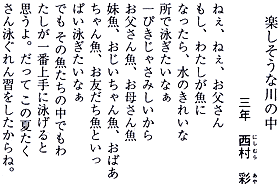 楽しそうな川の中
三年　西村　彩
にしむら　あや
ねえ、ねえ、お父さん
もし、わたしが魚に
なったら、水のきれいな
所で泳ぎたいなぁ
一ぴきじゃさみしいから
お父さん魚、お母さん魚
妹魚、おじいちゃん魚、おばあ
ちゃん魚、お友だち魚といっ
ぱい泳ぎたいなぁ
でも その魚たちの中でもわ
たしが一番上手に泳げると
思うよ。だって この夏たく
さん泳ぐれん習をしたからね。